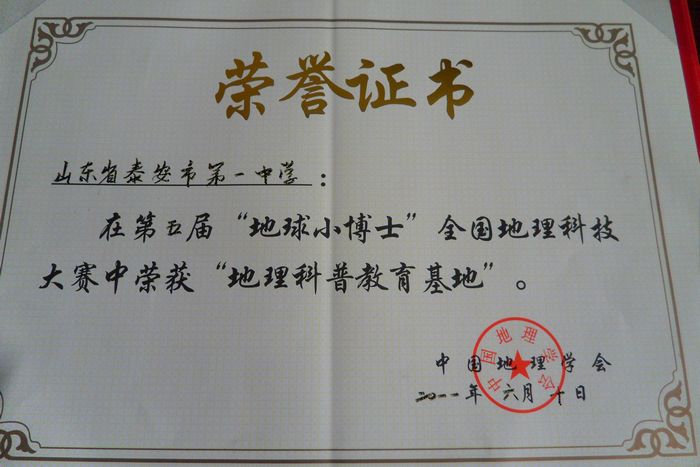 荣誉证书
山东省泰安市第一中学：
在第五届“地球小博士”全国地理科技
大赛中荣获“地理科普教育基地”。
中国地理学会
中国地理学会
二〇一一年六月十日